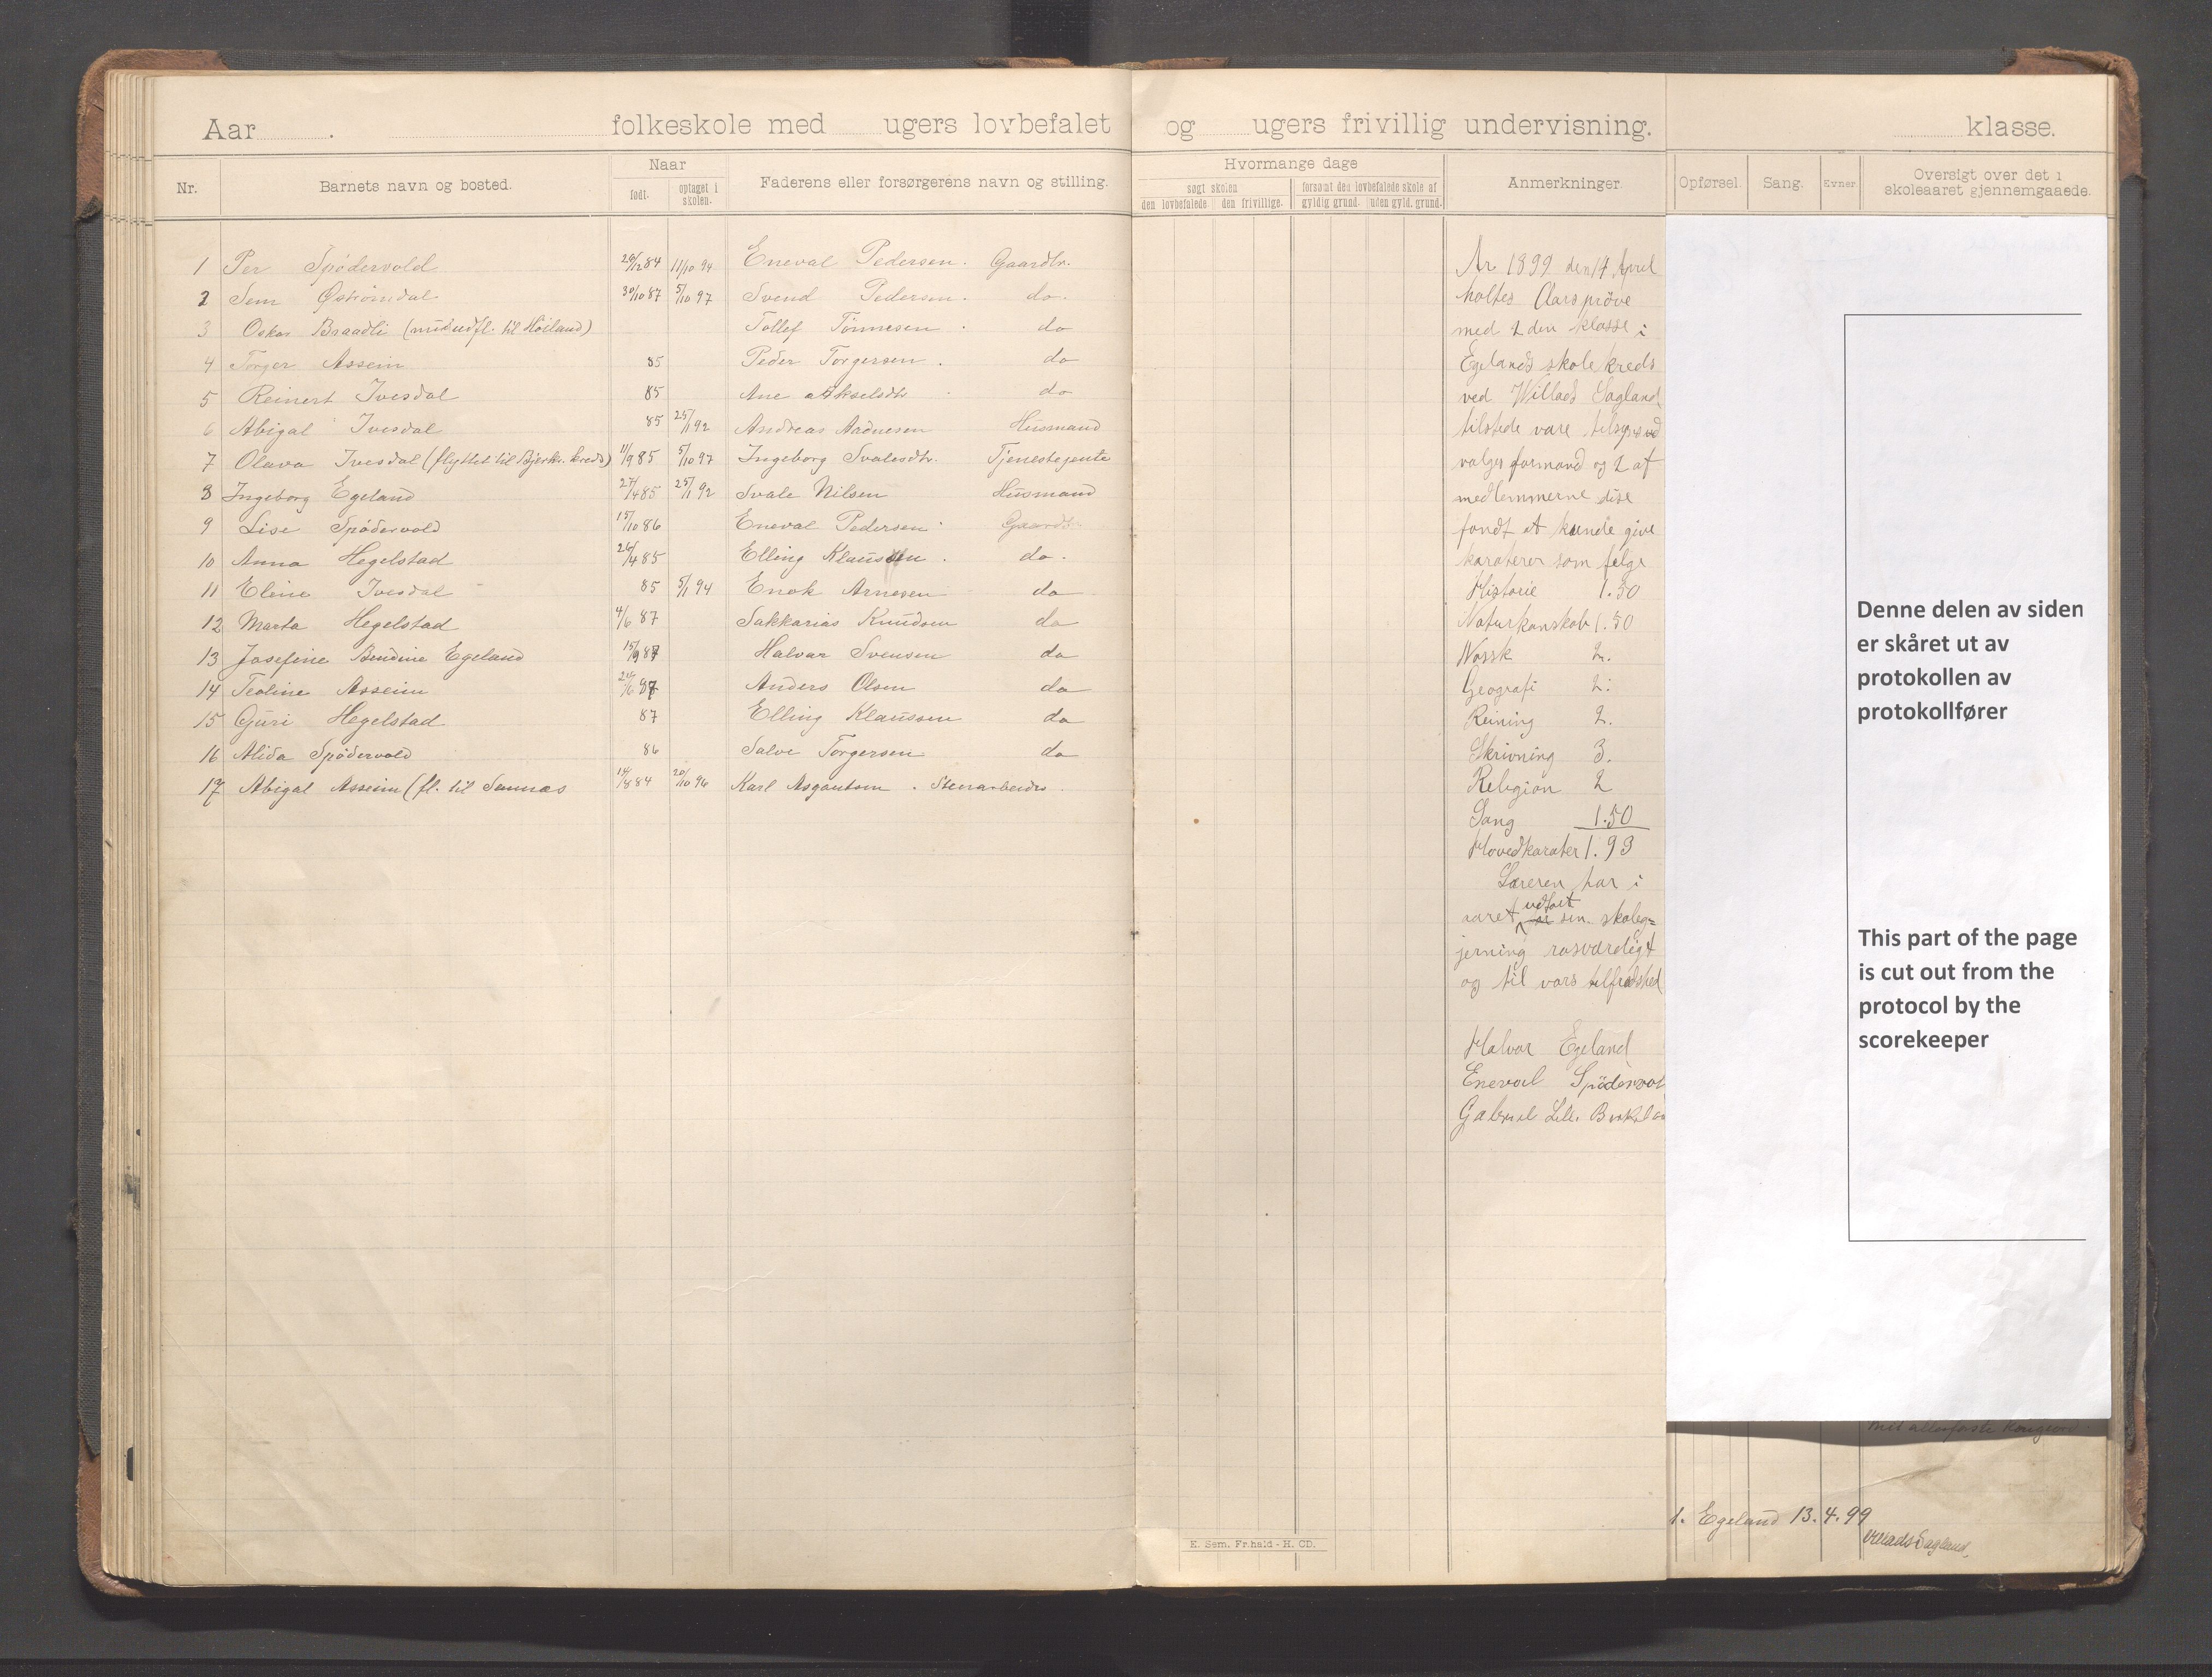 Aar . folkeskole med ugers lovbefalet og ugers frivillig undervisning. klasse.
Nr. Barnets navn og bosted. Naar født. optaget i skolen. Faderens eller forsørgerens navn og stilling.
Hvormange dage
søgt skolen den lovbefalede. den frivillige. forsømt den lovbefalede skole af gyldig grund. uden gyld. grund.
Anmerkninger.
Opførsel. Sang. Evner. Oversigt over det i skoleaaret gjennemgaaede.
1 Per Spødervold 26/12 84 11/10 94 Eneval Pedersen. Gaardbr.
2 Sem Østrømdal 30/10 87 5/10 97 Svend Pedersen. do.
3 Oskar Braadli (midudfl. til Høiland) Tollef Tønnesen . do
4 Torger Asseim 85 Peder Torgersen . do
5 Reinert Ivesdal 85 Ane Akselsdtr do
6 Abigal Ivesdal 85 25/1 92 Andreas Aadnesen Husmand
7 Olava Ivesdal (flyttet til Bjerkr. kreds) 11/9 85 5/10 97 Ingeborg Svalesdtr. Tjenestejente
8 Ingeborg Egeland 27/4 85 25/1 92 Svale Nilsen Husmand
9 Lise Spødervold 15/10 86 Eneval Pedersen Gaardbr
10 Anna Hegelstad 26/4 85 Elling Klaussen . do.
11 Eline Ivesdal 85 5/1 94 Enok Arnesen do
12 Marta Hegelstad 4/6 87 Sakkarias Knudsen do
13 Josefine Bendine Egeland 15/9 87 Halvar Svensen do
14 Teoline Asseim 24/6 87 Anders Olsen do
15 Guri Hegelstad 87 Elling Klaussen do
16 Alida Spødervold 86 Salve Torgersen do
17 Abigal Asseim (fl. til Sannæs 14/8 84 20/10 96 Karl Asgautsen . Stenarbeider
Ar 1899 den 14 April
holtes Aarsprøve
med 2 den klasse i
Egelands skolekreds
ved Willads Eagland,
tilstede vare tilsyns
valges formand og 2 af
medlemmerne dise
fandt at kunde give
karaterer som følge
Historie 1.50
Naturkanskab 1.50
Norsk 2.
Geografi 2.
Reining 2.
Skrivning 3.
Religion 2
Sang 1.50
Hovedkarater 1.93
Læreren har i
aaret udført sin skoleg=
jerning rosværdigt
og til vars tilfredshed
Halvar Egeland
Eneval Spödervol
Gabriel Lill. Birkela
Denne delen av siden
er skåret ut av
protokollen av
protokollfører
This part of the page
is cut out from the
protocol by the
scorekeeper
1. Egeland 13.4.99
Willads Eagland.
E. Sem. Fr.hald - H. CD.